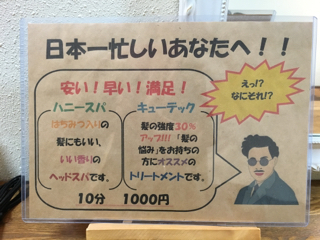 日本一忙しいあなたへ！！
安い！早い！満足！
ハニースパ
はちみつ入りの
髪にもいい、
いい香りの
ヘッドスパです。
キューテック
髪の強度30％
アップ!!!「髪の
悩み」をお持ちの
方にオススメの
トリートメントです。
10分　1000円
えっ!?
なにそれ!?